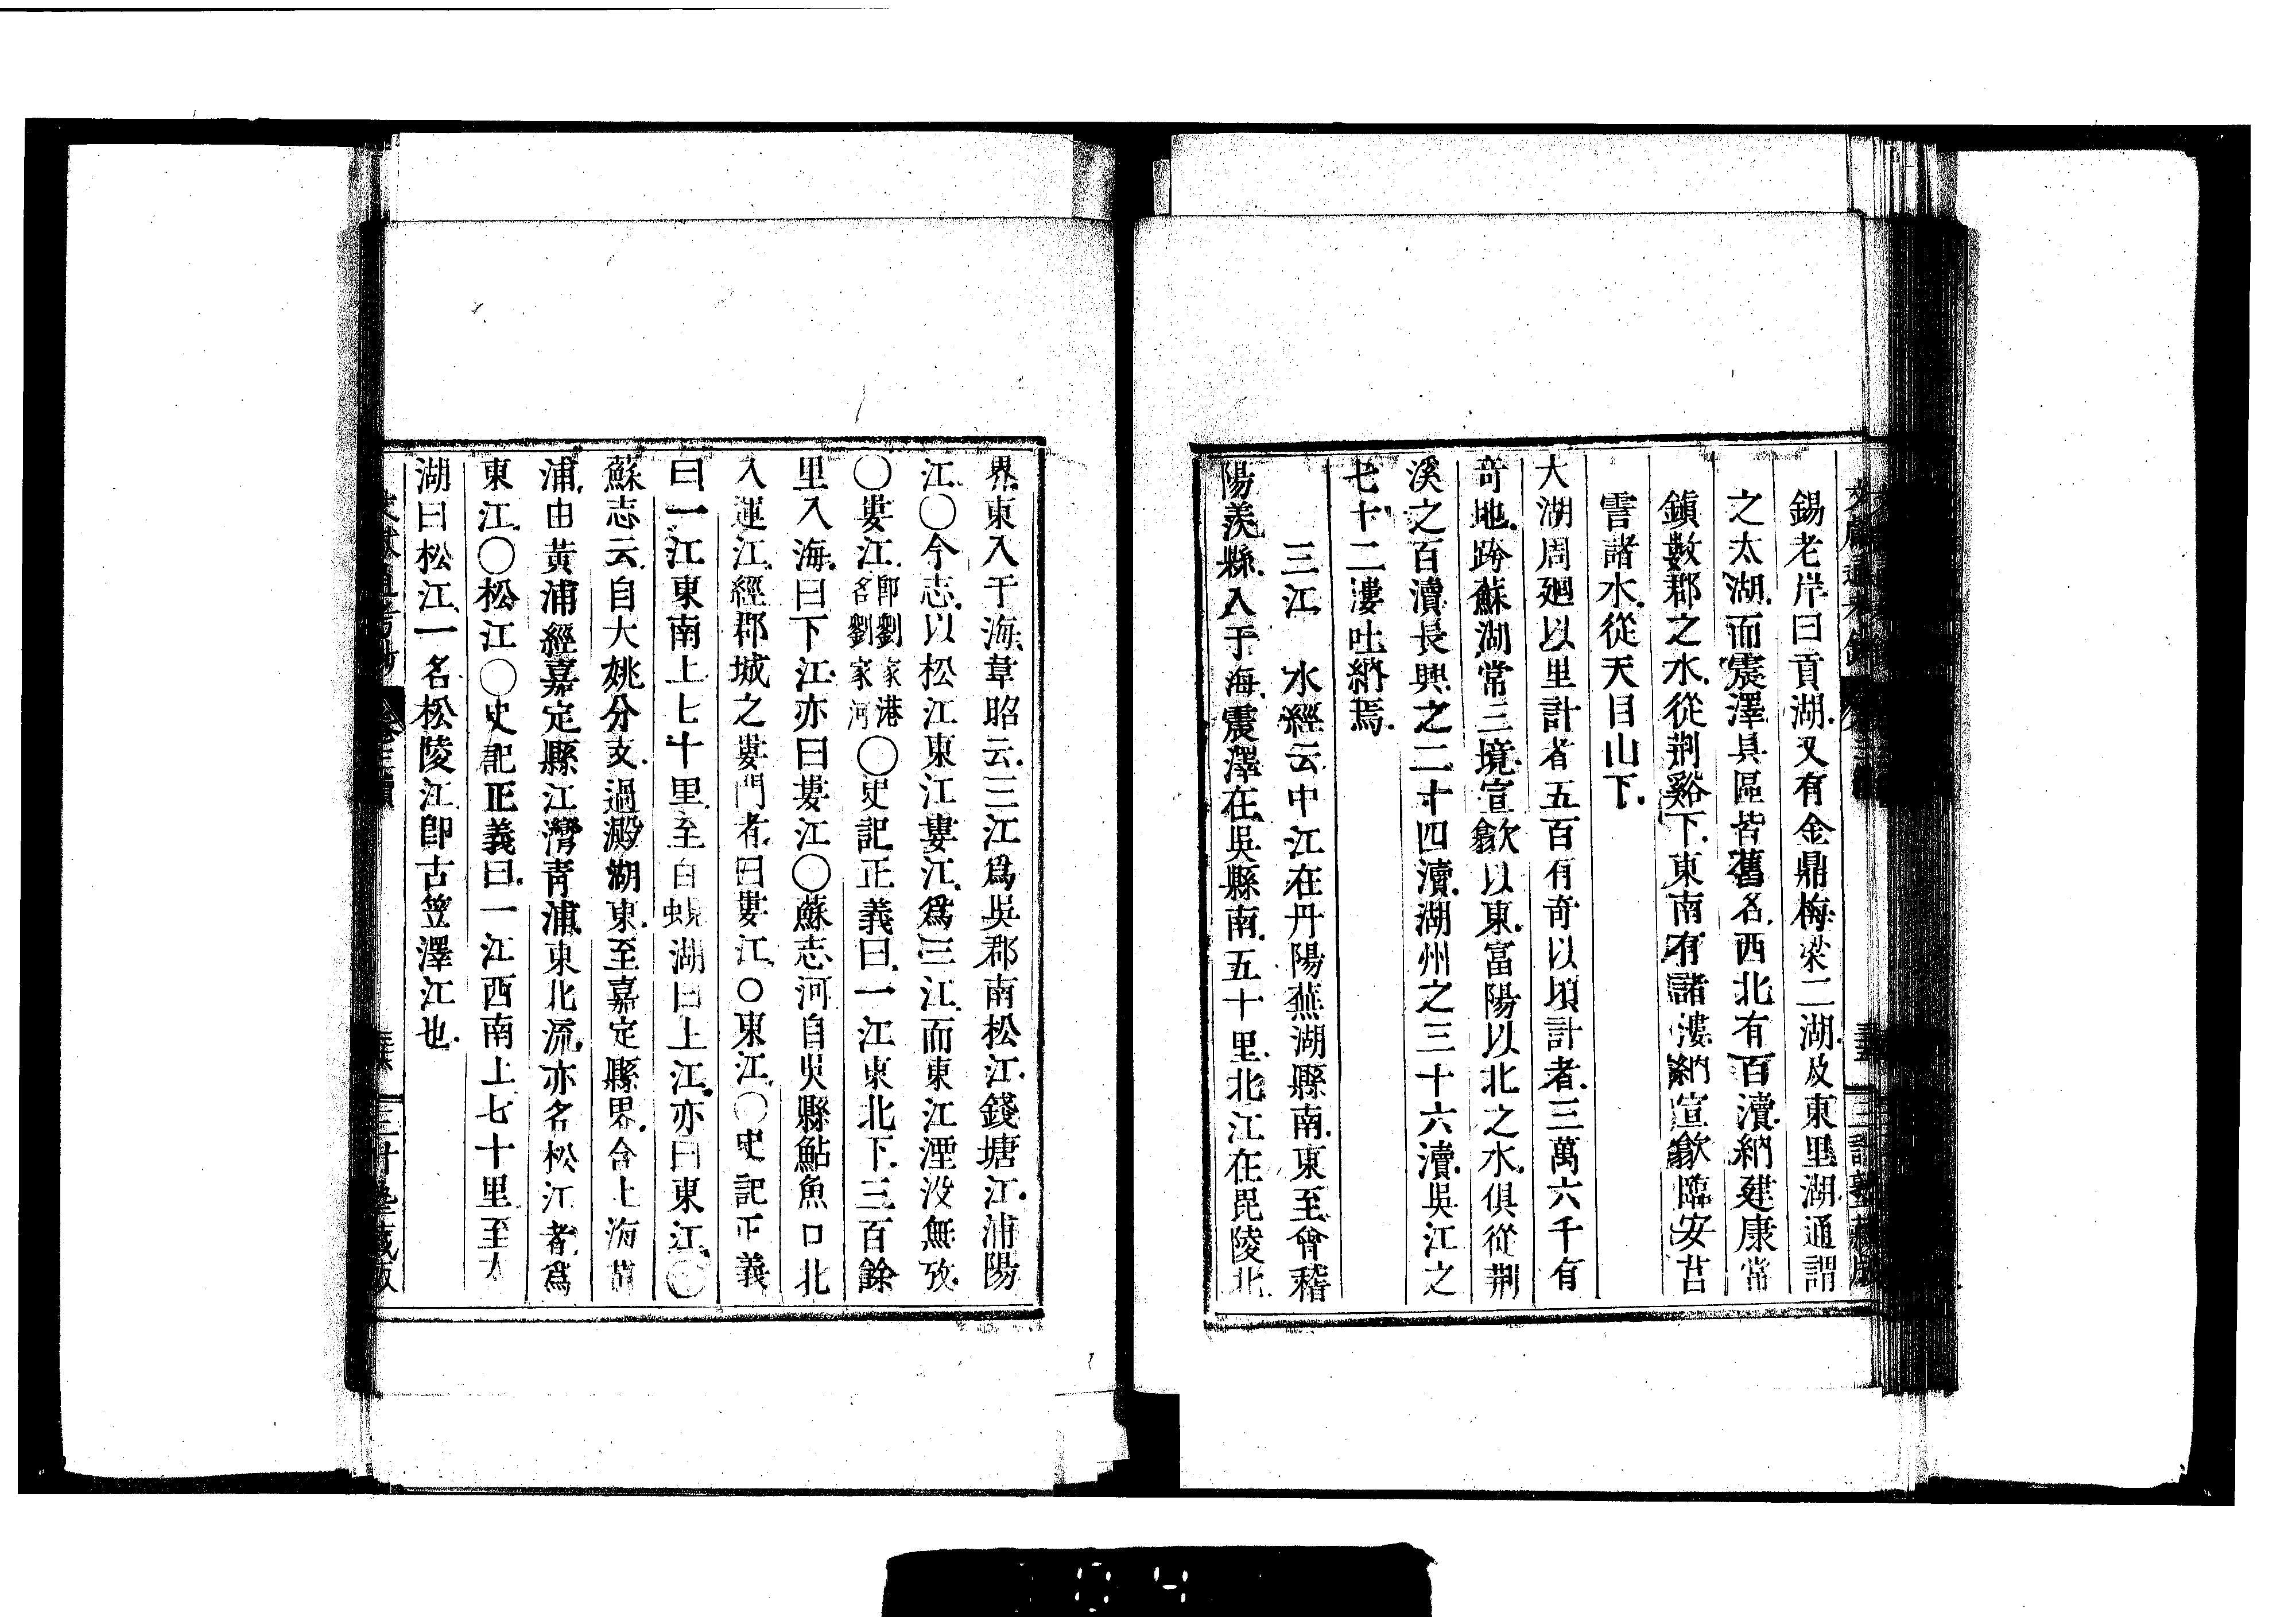 錫老岸曰貢湖又有金鼎梅梁二湖及東里湖通謂
之太湖而震澤具區皆舊名西北有百瀆納建康常
鎮數郡之水從荆谿下東南有諸漊納宣歙臨安苕
霅諸水從天目山下
大湖周廻以里計者五百有奇以頃計者三萬六千有
奇地跨蘇湖常三境宣歙以東富陽以北之水俱從荆
溪之百瀆長興之二十四瀆湖州之三十六瀆吳江之
七十二漊吐納焉
三江　水經云中江在丹陽蕪湖縣南東至會稽
陽羨縣入于海震澤在吳縣南五十里北江在毘陵北
界東入于海韋昭云三江爲吳郡南松江錢塘江浦陽
江〇今志以松江東江婁江爲三江而東江湮没無攷
〇婁江卽劉家港名劉家河〇史記正義曰一江東北下三百餘
里入海曰下江亦曰婁江〇蘇志河自吳縣鮎魚口北
入運江經郡城之婁門者曰婁江〇東江〇史記正義
曰一江東南上七十里至白蜆湖曰上江亦曰東江〇
蘇志云自大姚分支過澱湖東至嘉定縣界合上海
浦由黃浦經嘉定縣江灣靑浦東北流亦名松江者爲
東江〇松江〇史記正義曰一江西南上七十里至太
湖曰松江一名松陵江卽古笠澤江也